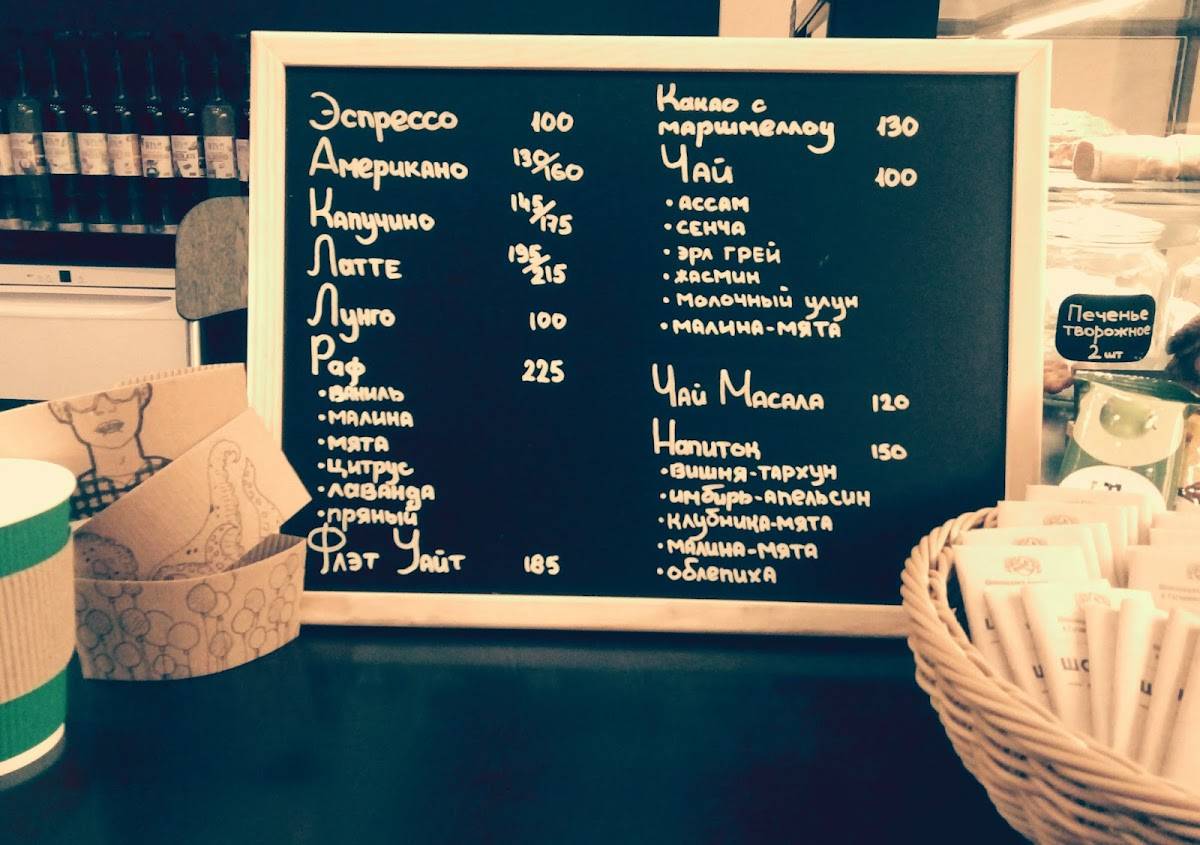 Эспрессо 100
Американо 130/160
Капучино 145/175
Латте 195/215
Лунго 100
Раф 225
• ваниль
• малина
• мята
• цитрус
• лаванда
• пряный
Флэт Уайт 185
Какао с
маршмеллоу 130
Чай 100
• ассам
• сенча
• эрл грей
• жасмин
• молочный улун
• малина-мята
Чай Масала 120
Напиток 150
• вишня-тархун
• имбирь-апельсин
• клубника-мята
• малина-мята
• облепиха
Печенье
творожное
2 шт